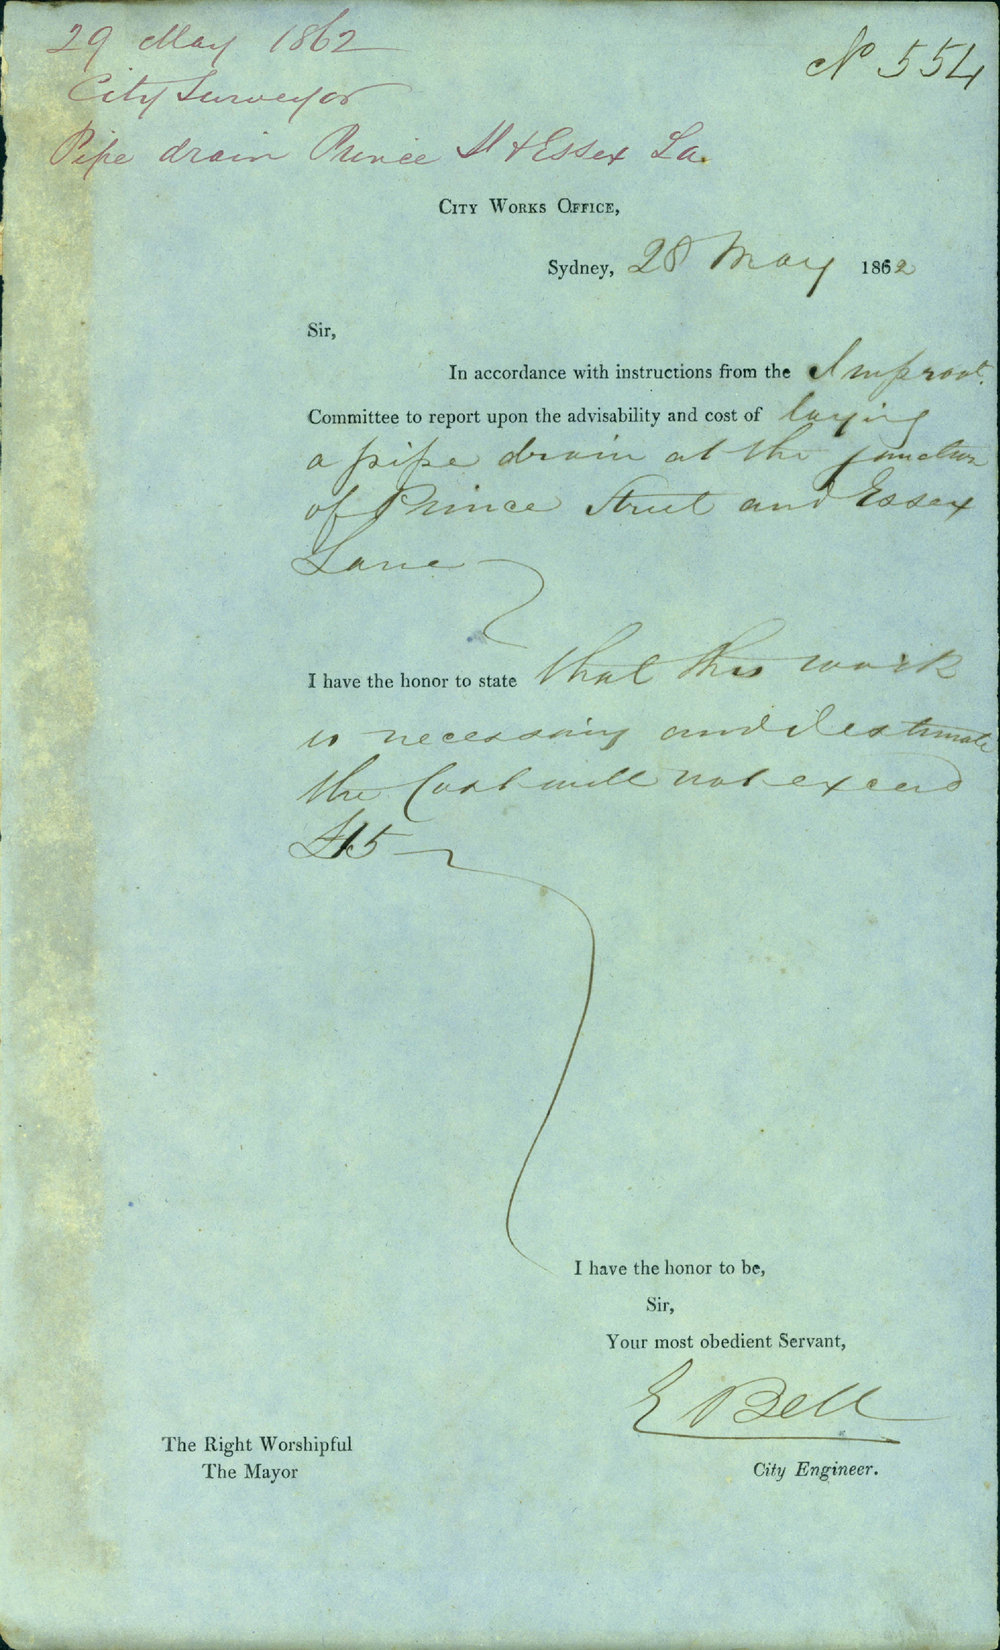 29 May 1862
No 554
City Surveyor
Pipe drain Prince St & Essex La.
CITY WORKS OFFICE,
Sydney, 28 May 1862
Sir,
In accordance with instructions from the Improvt.
Committee to report upon the advisability and cost of laying
a pipe drain at the junction
of Prince Street and Essex
Lane
I have the honor to state that this work
is necessary and I estimate
the Cost will not exceed
£15
I have the honor to be,
Sir,
Your most obedient Servant,
E Bell
The Right Worshipful
The Mayor
City Engineer.